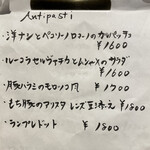 Antipasti
・洋ナシとペコリーノロマーノのカルパッチョ
¥1600
・ルーコラセルヴァチカとんシメのサラダ
¥1600
・豚バラミこのモロッコ風 ¥1700
・もち豚のアリスタ レンズ豆添え ¥1800
・ランプレドット ¥1800